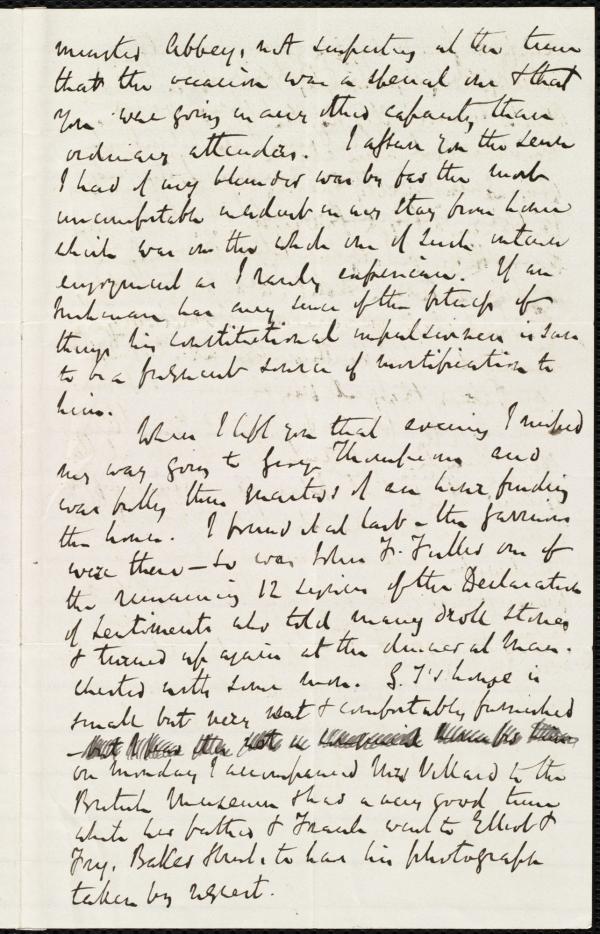 minster Abbey, not suspecting at the time
that the occasion was a special one & that
you were going in any other capacity than
ordinary attenders. I assure you the sense
I had of my blunder was by far the most
uncomfortable incident in my stay from home
which was on the whole one of such intense
enjoyment as I rarely experience. If an
Irishman has any sense of the fitness of
things his constitutional impulsiveness is sure
to be a frequent source of mortification to
him.
When I left you that evening I missed
my way going to George Thompson's and
was fully three quarters of an hour finding
the house. I found it at last - the Garrisons
were there - so was John F. Fuller one of
the remaining 12 signers of the Declaration
of Sentiments who told many droll stories
& turned up again at the dinner at Man-
chester with some more. G. T's house is
small but very neat & comfortably furnished
-
on Monday I accompanied Mrs Villard to the
British Museum & had a very good time
while her father & Frank went to Elliot &
Fry, Baker Street to have his photograph
taken by request.